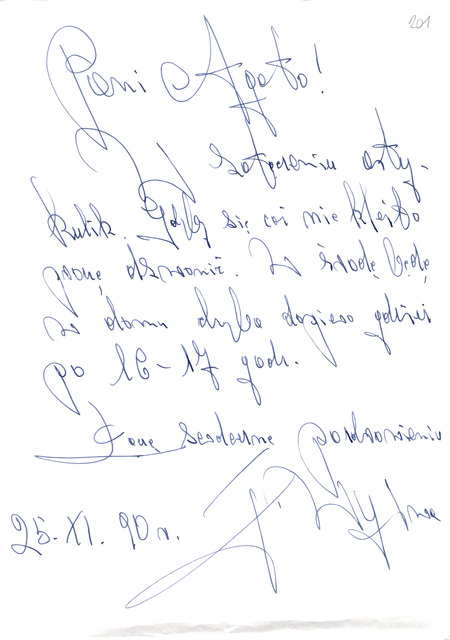 201
Pani Agato!
W załączeniu arty-
kulik. Gdyby się coś nie kleiło
proszę dzwonić. W środę będę
w domu chyba dopiero gdzieś
po 16-17 godz.
Łączę serdeczne pozdrowienia
25. XI. 90 r.